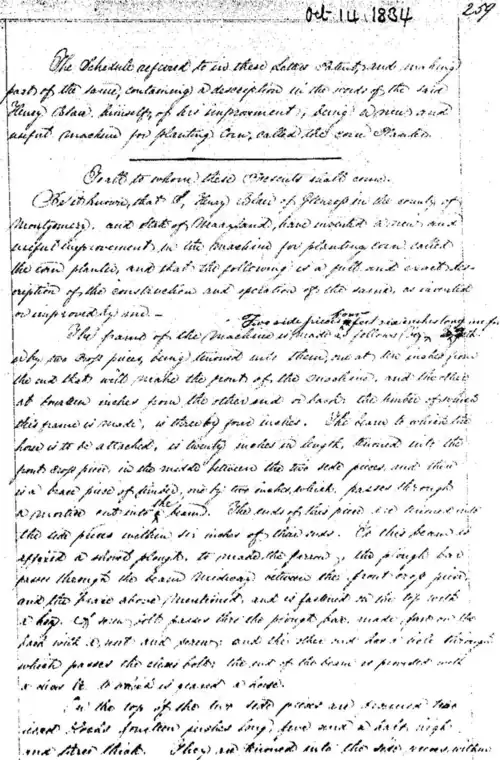 Oct 14, 1834
259
The Schedule refered to in these Letters Patent, and making
part of the same, containing a description in the words of the said
Henry Blair himself, of his improvement, being a new and
useful machine for planting Corn, called the corn Planter.
To all to whom these Presents shall come
Be it known, that I, Henry Blair of Glenross in the county of
Montgomery, and state of Maryland, have invented a new and
useful improvement in the machine for planting corn called
the corn planter, and that the following is a full and exact des-
cription of the construction and operation of the same, as invented
or improved by me —
Two side pieces four feet six inches long
The frame of the Machine is made as follows
by two cross pieces, being tenoned into them, one at ten inches from
the end that will make the front of the machine, and the other
at fourteen inches from the other end or back: the timber of which
this frame is made, is three by four inches. The beam to which the
horse is to be attached, is twenty inches in length, tenoned into the
front cross piece, in the middle between the two side pieces, and there
is a brace piece of timber, one by two inches, which passes through
a mortice cut into the beam. The ends of this piece are tenoned into
the side pieces within six inches of their ends. To this beam is
affixed a shovel plough, to made the furrow, the plough bar
passes through the beam midway between the front cross piece
and the brace above mentioned, and is fastened on the top with
a key. A screw bolt passes thro the plough bar, made fast on the
back with a nut and screw; and the other end has a hole through
which passes the clevis bolt: the end of the beam is provided with
a clevis to which is geared a horse.
On the top of the two side pieces are tenoned two
fourteen inches long, five and a half high
and three thick. They are tenoned into the side pieces, within